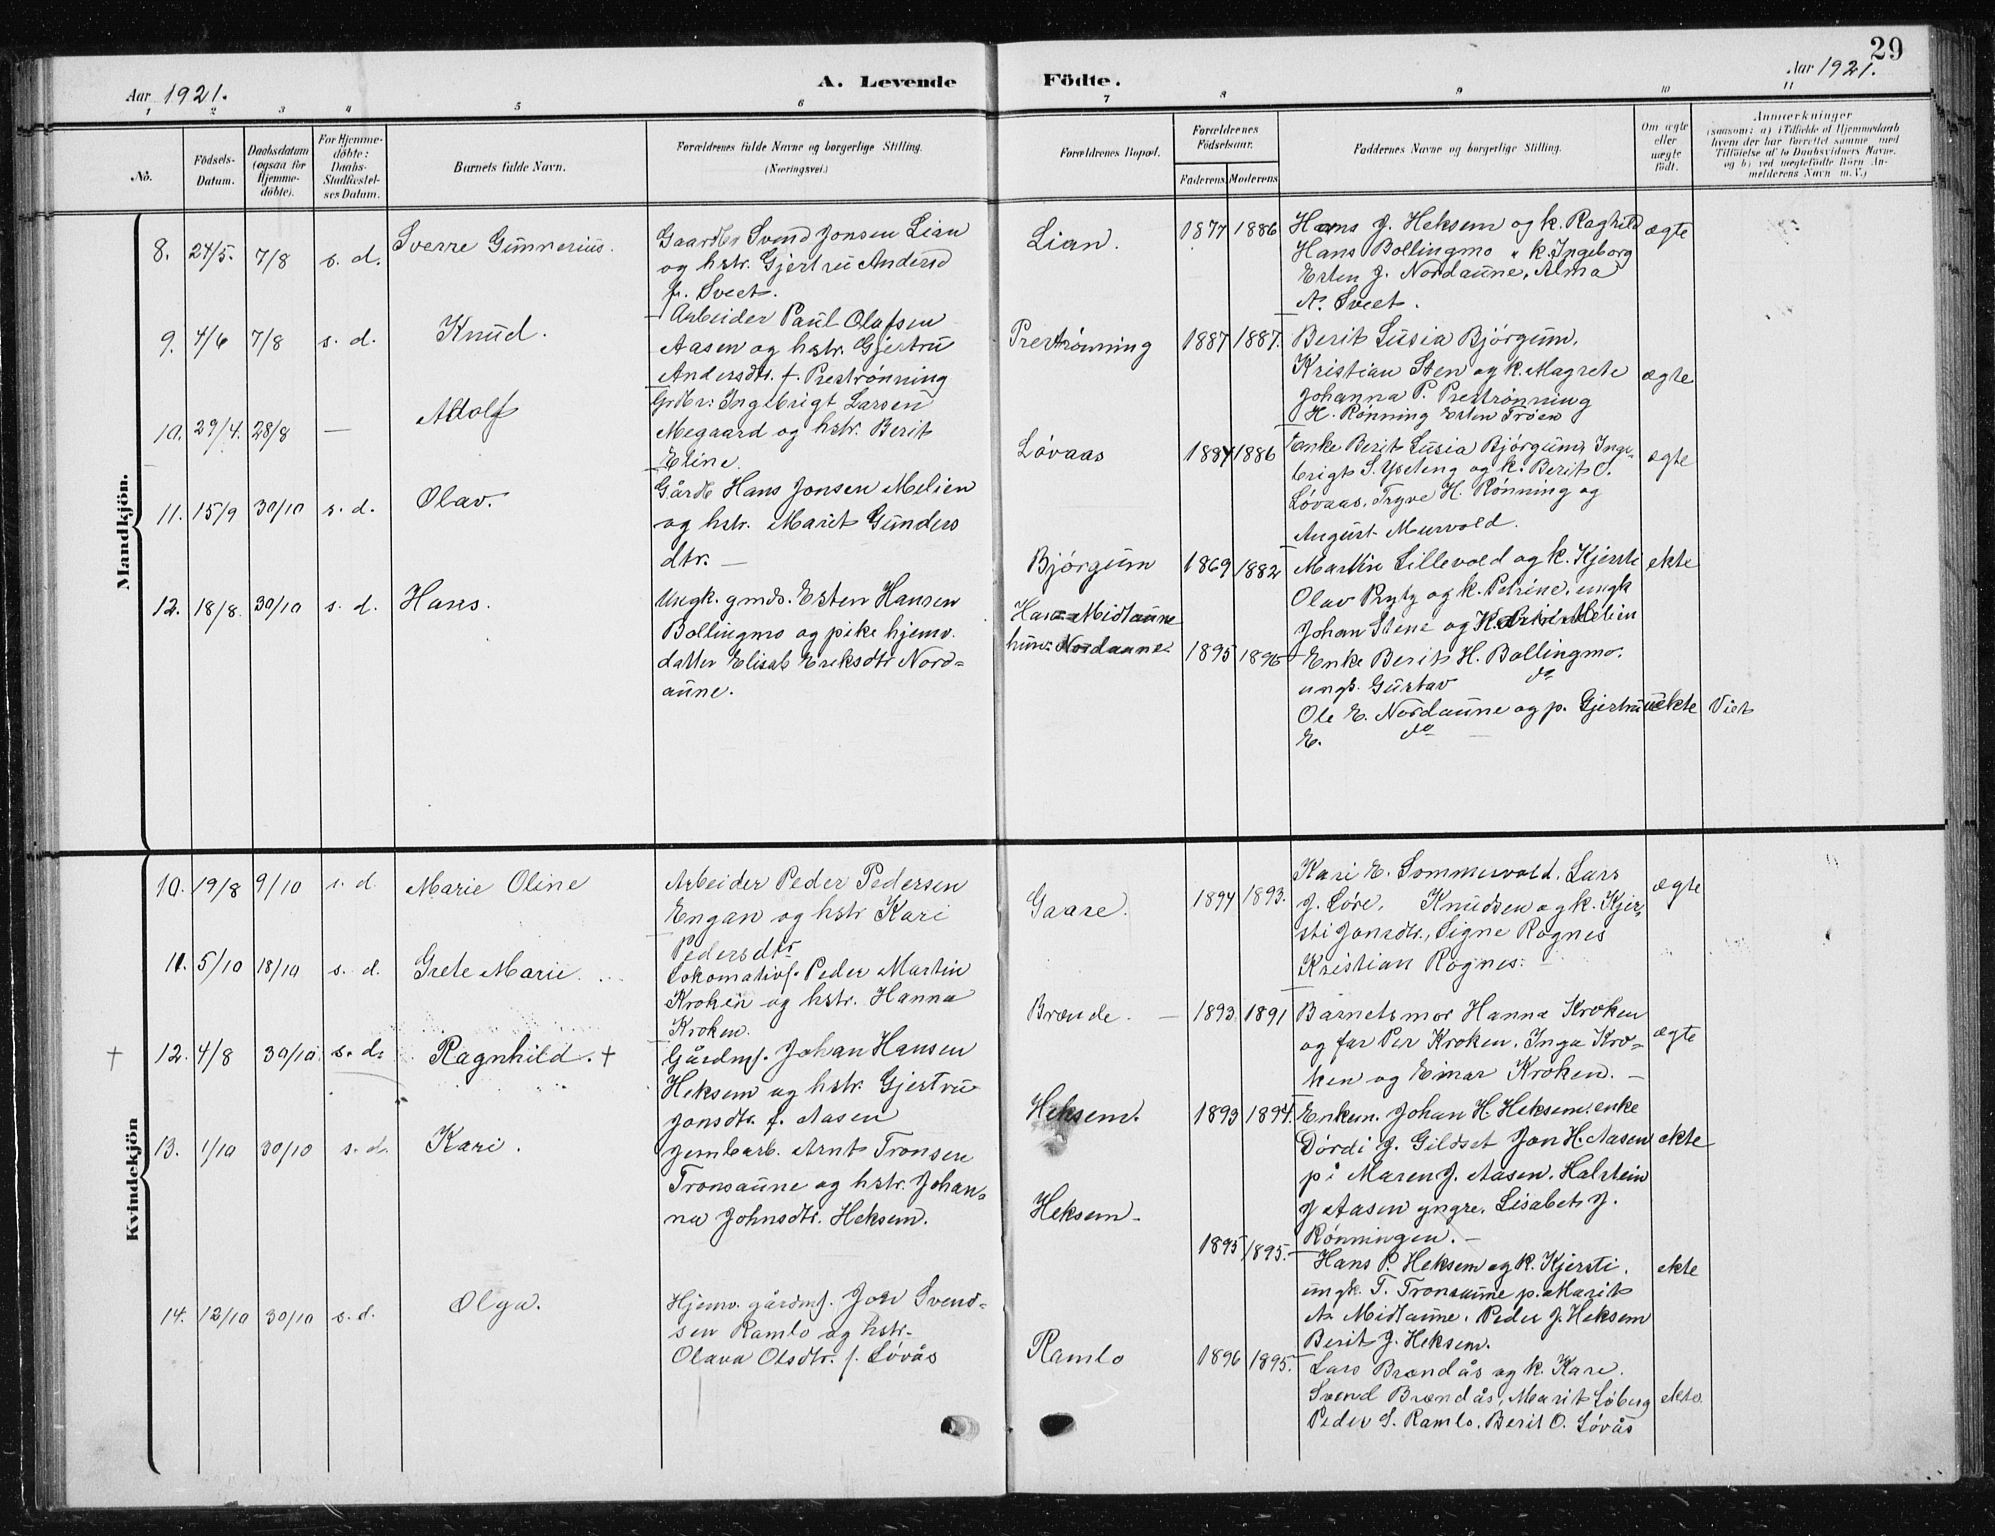 29
Aar 1921.
A. Levende Födte.
Aar 1921.
1 2 3 4 5 6 7 8 9 10 11
No.
Födsels-Datum.
Daabsdatum (ogsaa for Hjemme-döbte).
For Hjemme-döbte: Daabs-Stadfæstel-ses Datum.
Barnets fulde Navn.
Forældrenes fulde Navne og borgerlige Stilling.
(Næringsvei.)
Forældrenes Bopæl.
Forældrenes Födselsaar.
Faderens. Moderens.
Faddernes Navne og borgerlige Stilling.
Om ægte eller uægte födt.
Anmærkninger
(saasom: a) i Tilfælde af Hjemmedaab
hvem der har forrettet samme med
Tilföielse af to Daabsvidners Navne.
og b) ved uægtefödte Börn An-
melderens Navn m. V.)
Mandkjön.
8. 24/5. 7/8 s. d. Sverre Gunnerius.
Gaardbr Svend Jonsen Lian
og hstr. Gjertru Andersd
f. Sveet.
Lian. 1877 1886
Hans J. Heksem og k. Raghild
Hans Bollingmo " k. Ingeborg
Esten J. Nordaune, Alma
A. Sveet.
ægte
9. 4/6 7/8 s. d. Knud.
Arbeider Paul Olafsen
Aasen og hstr. Gjertru
Andersdtr. f. Prestrønning
Prestrønning 1887 1887.
Berit Lusia Bjørgum.
Kristian Sten og k. Magrete
Johanna P. Prestrønning
H. Rønning Esten Trøen
ægte
10. 29/4. 28/8 — Adolf
Grdbr: Ingebrigt Larsen
Megaard og hstr. Berit
Eline.
Løvaas 1887 1886
Enke Berit Lusia Bjørgum, Inge-
brigt S. Yseteng og k. Berit O.
Løvaas, Tryve H. Rønning og
August Murvold.
ægte
11. 15/9 30/10 s. d. Olav.
Gårdb Hans Jonsen Melien
og hstr. Marit Gunders
dtr. —
Bjørgum 1869 1882
Martin Lillevold og k. Kjersti
Olav Rytz og k. Petrine, ungk
Johan Stene og Melien
ekte
12. 18/8 30/10 s. d. Hans.
Ungk. gmds. Esten Hansen
Bollingmo og pike hjemv.
datter Elisab Eriksdtr Nord=
aune.
Han = Midtaune
hun = Nordaune 1895 1896
Enke Berit H. Bollingmo.
ungk. Gustav do
Ole E. Nordaune og p. Gjertru
E. do
uekte Viet
Kvindekjön
10. 19/8 9/10 s. d. Marie Oline
Arbeider Peder Pedersen
Engan og hstr Kari
Pedersdtr
Gaare. 1894 1893.
Kari E. Sommervold. Lars
J. Løre. Knudsen og k. Kjer-
sti Jonsdtr., Signe Rognes
Kristian Rognes: —
ægte
11. 5/10 18/10 s. d. Grete Marie.
Lokomativf. Peder Martin
Kroken og hstr. Hanna
Kroken.
Brænde. — 1893 1891
Barnets mor Hanna Kroken
og far Per Kroken. Inga Kro-
ken og Einar Kroken. —
ægte
† 12. 4/8 30/10. s. d. Ragnhild. †
Gårdmf. Johan Hansen
Heksem og hstr Gjertru
Jonsdtr. f. Aasen
Heksem. 1893 1894.
Enkem. Johan H. Heksem, enke
Dørdi J. Gildset Jon H. Aasen
pi Maren J. Aasen. Halstein
J Aasen yngre. Lisabet J.
Rønningen. —
ekte
13. 1/10 30/10 s. d. Kari.
Jernbarb. Arnt Tronsen
Tronsaune og hstr. Johan-
na Johnsdtr. Heksem.
Heksem. 1895 1895.
Hans P. Heksem og k. Kjersti.
ungk. T. Tronsaune p. Marit
A. Midtaune. Peder J. Heksem
Berit J. Heksem.
ekte
14. 12/10 30/10 s. d. Olga.
Hjemv. gårdmf. Jon Svend-
sen Ramlo og hstr.
Olava Olsdtr. f. Løvås
Ramlo 1896 1895.
Lars Brændås og k. Kare.
Svend Brændås, Marit Løberg
Peder S. Ramlo. Berit O. Løvås
ekte